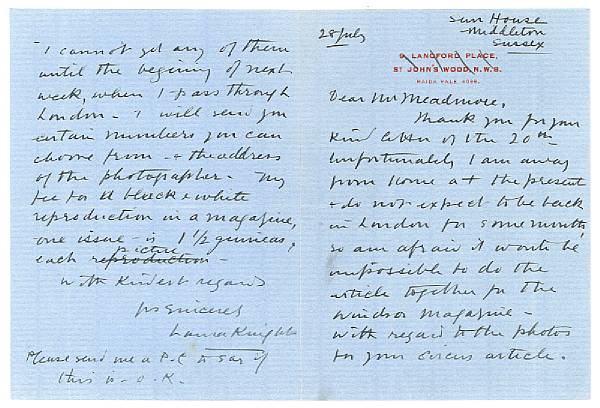 Sun House
Middleton
Sussex
28 July
9, LANGFORD PLACE,
ST JOHN'S WOOD, N.W.8.
MAIDA VALE
Dear Mr Meadmore,
Thank you for your
kind letter of the 20th
Unfortunately I am away
from home at the present
+ do not expect to be back
in London for some months,
so am afraid it would be
impossible to do the
article together for the
Windsor Magazine -
with regard to the photos
for your circus article.
I cannot get any of them
until the beginning of next
week, when I pass through
London - I will send you
certain numbers you can
choose from - + the address
of the photographer - My
fee for a black & white
reproduction in a magazine,
one issue - is 1 1/2 guineas,
each picture reproduction -
With kindest regards
Yrs sincerely
Laura Knight
Please send me a P-C to say if
this is - O.K.